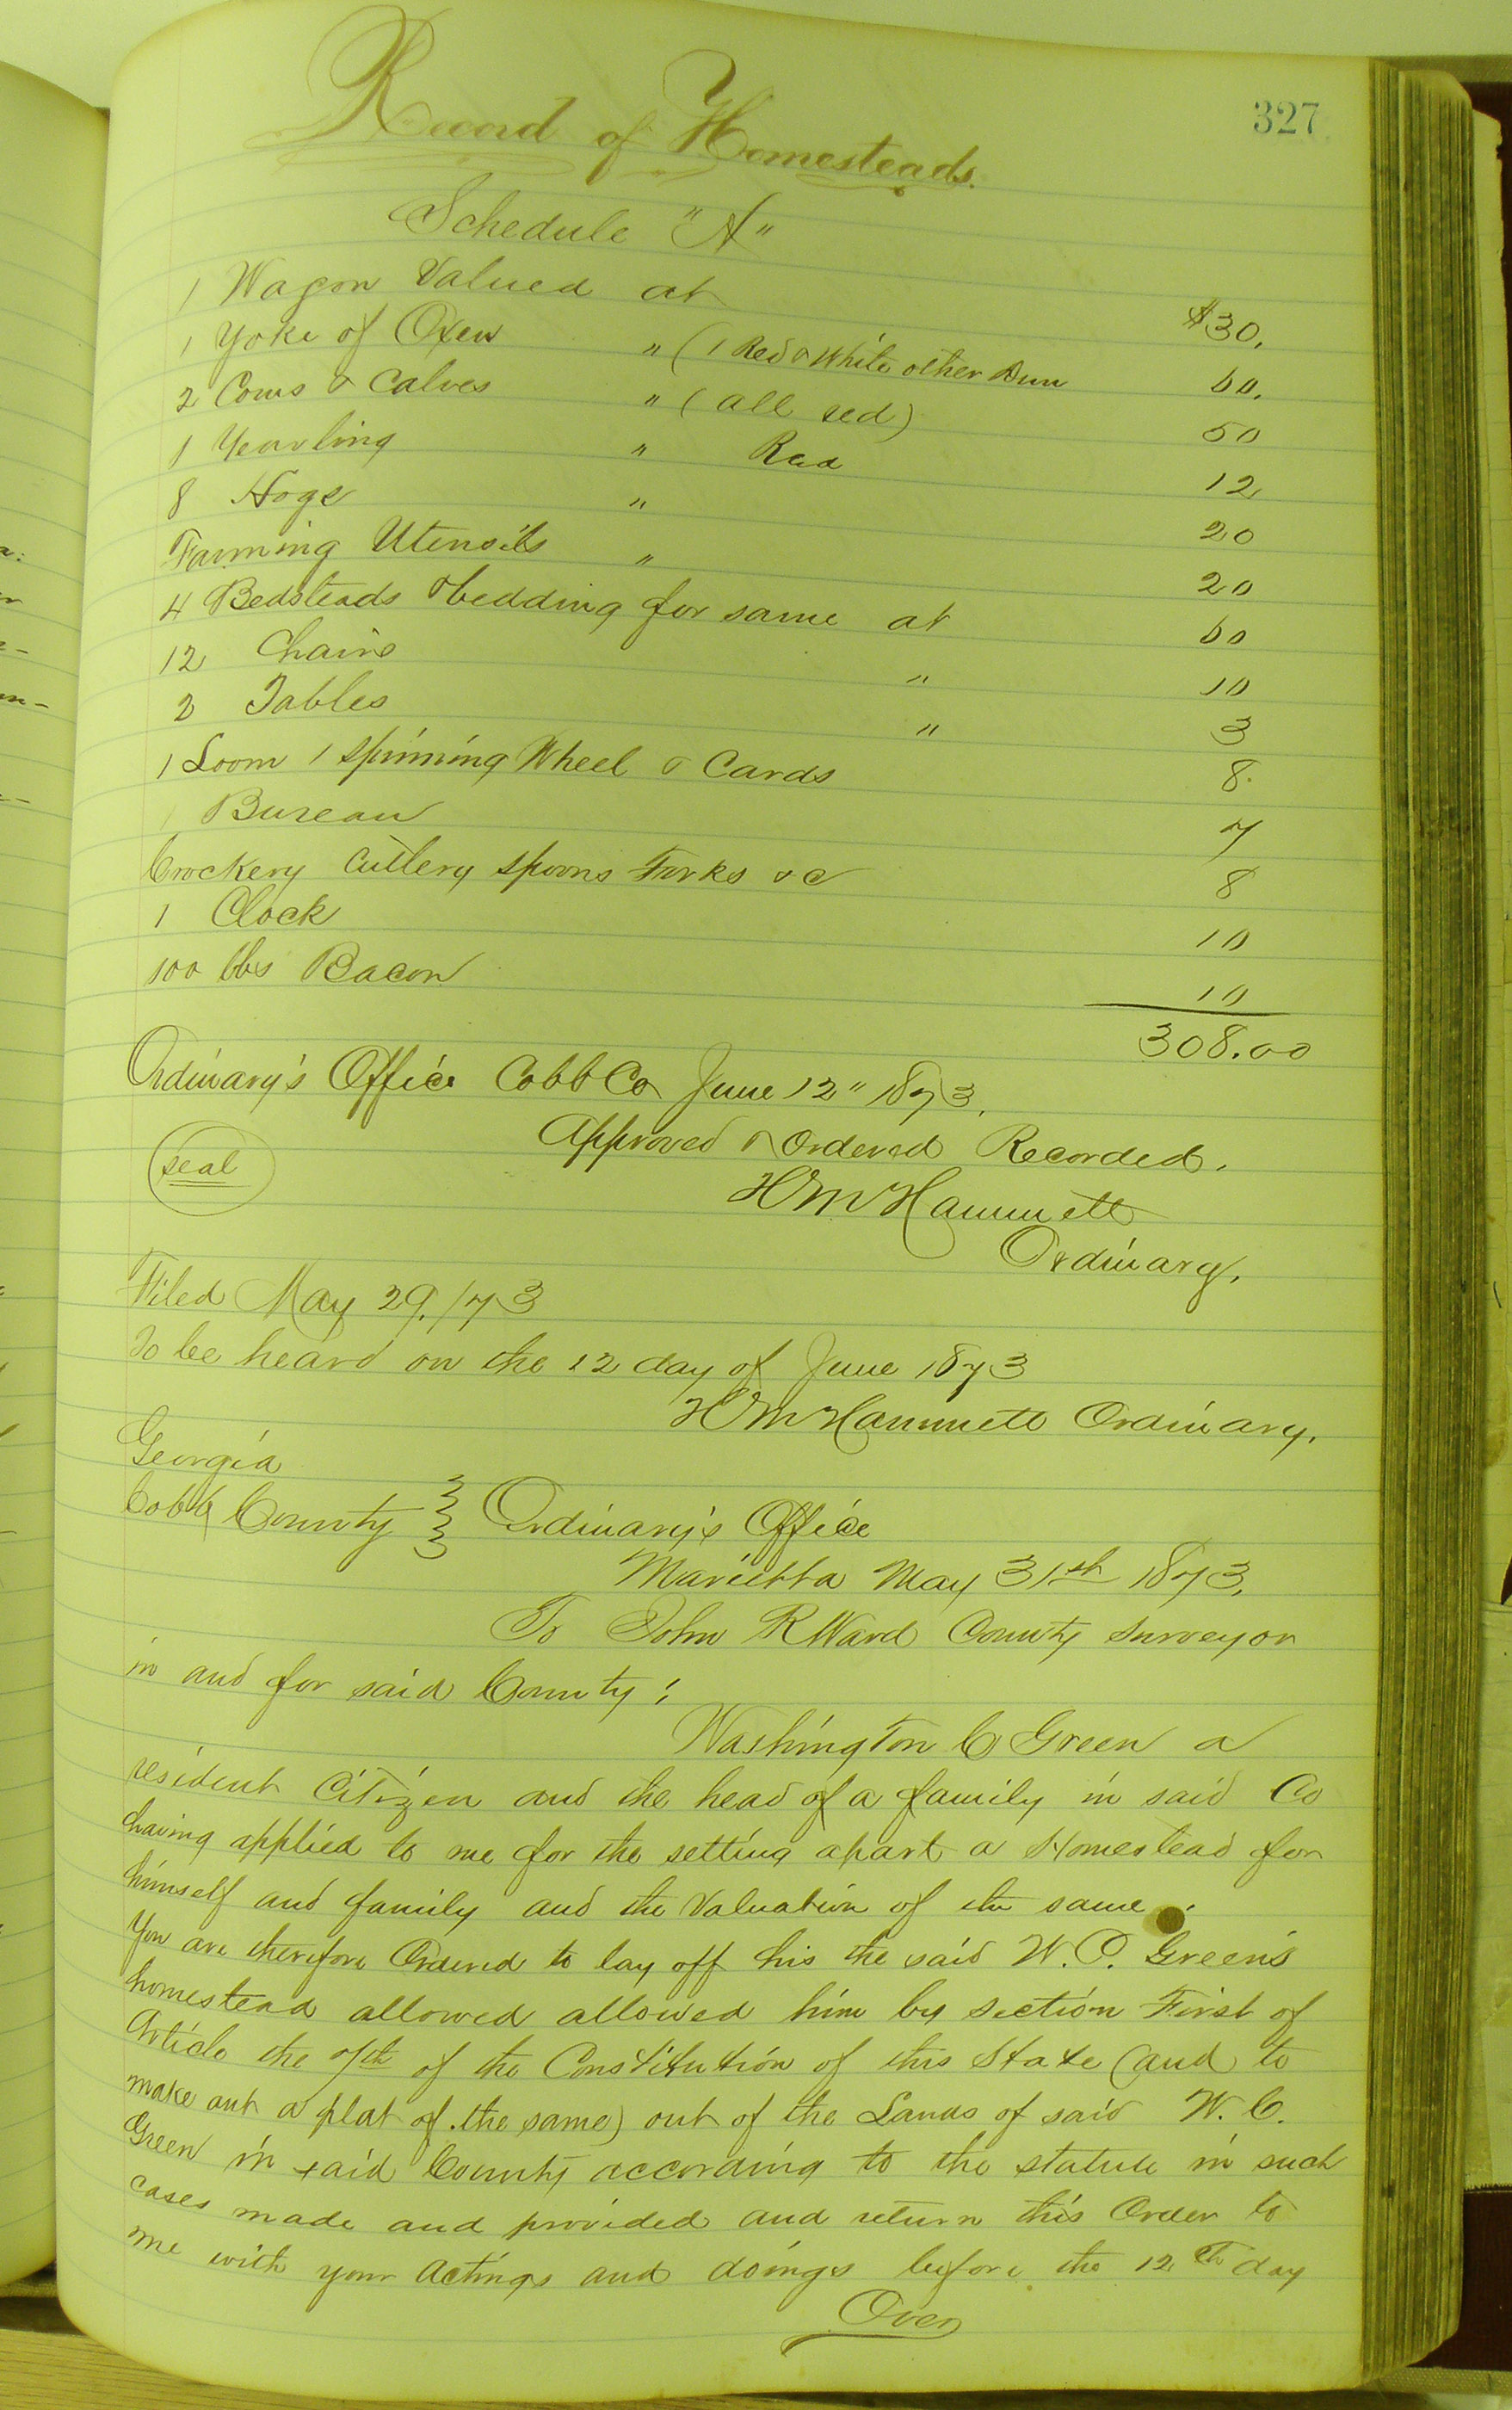 327
Record of Homesteads.
Schedule "A"
1 Wagon Valued at $30.
1 Yoke of Oxen " (1 Red & White other Dun 60.
2 Cows & Calves " (all red) 50
1 Yearling " Red 12
8 Hogs " 20
Farming Utensils " 20
4 Bedsteads & bedding for same at 60
12 Chairs " 10
2 Tables " 3
1 Loom 1 Spinning Wheel & Cards 8.
1 Bureau 7
Crockery Cutlery Spoons Forks &c 8
1 Clock 10
100 lbs Bacon 10
308.00
Ordinary's Office Cobb Co June 12" 1873.
Approved & Ordered Recorded.
seal
H M Hammett
Ordinary.
Filed May 29./73
To be heard on the 12 day of June 1873
H M Hammett Ordinary.
Georgia
Cobb County } Ordinary's Office
Marietta May 31st 1873.
To John R Ward County Surveyor
in and for said County;
Washington C Green a
resident Citizen and the head of a family in said Co
having applied to me for the setting apart a Homestead for
himself and family and the Valuation of the same.
You are therefore Ordered to lay off his the said W. C. Green's
homestead allowed allowed him by Section First of
Article the 7th of the Constitution of this State (and to
make out a plat of the same) out of the Lands of said W. C.
Green in said County according to the statute in such
cases made and provided and return this Order to
me with your Actings and doings before the 12th day
Over